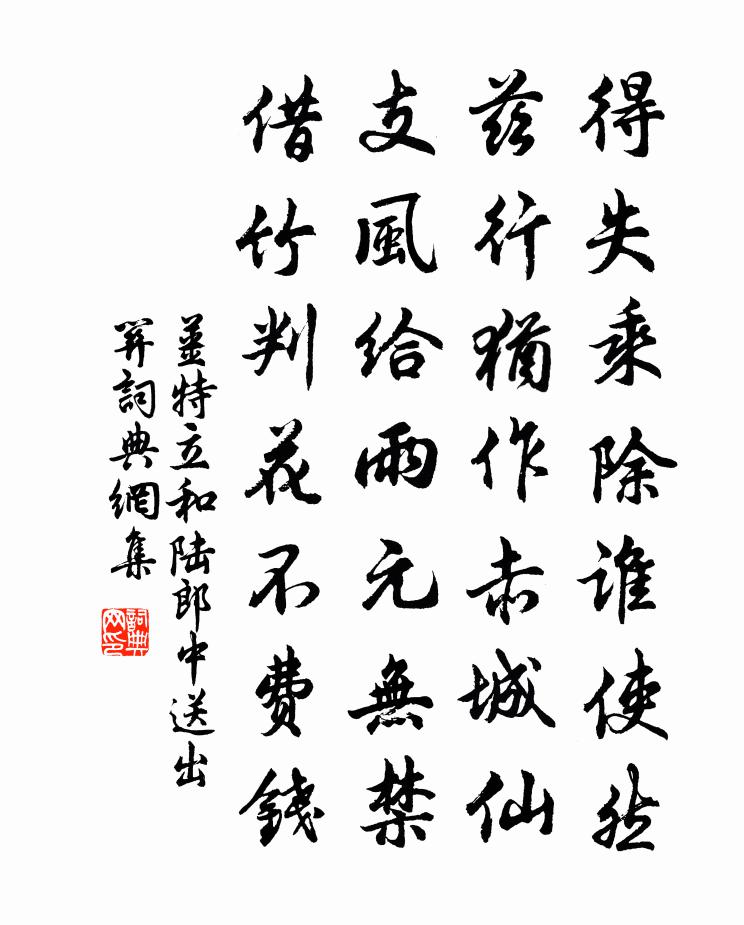 得失乘除誰使然
茲行猶作赤城仙
支風給雨元無禁
借竹判花不費錢
姜特立和陆郎中送出
笄詞典網集
詞典
网印